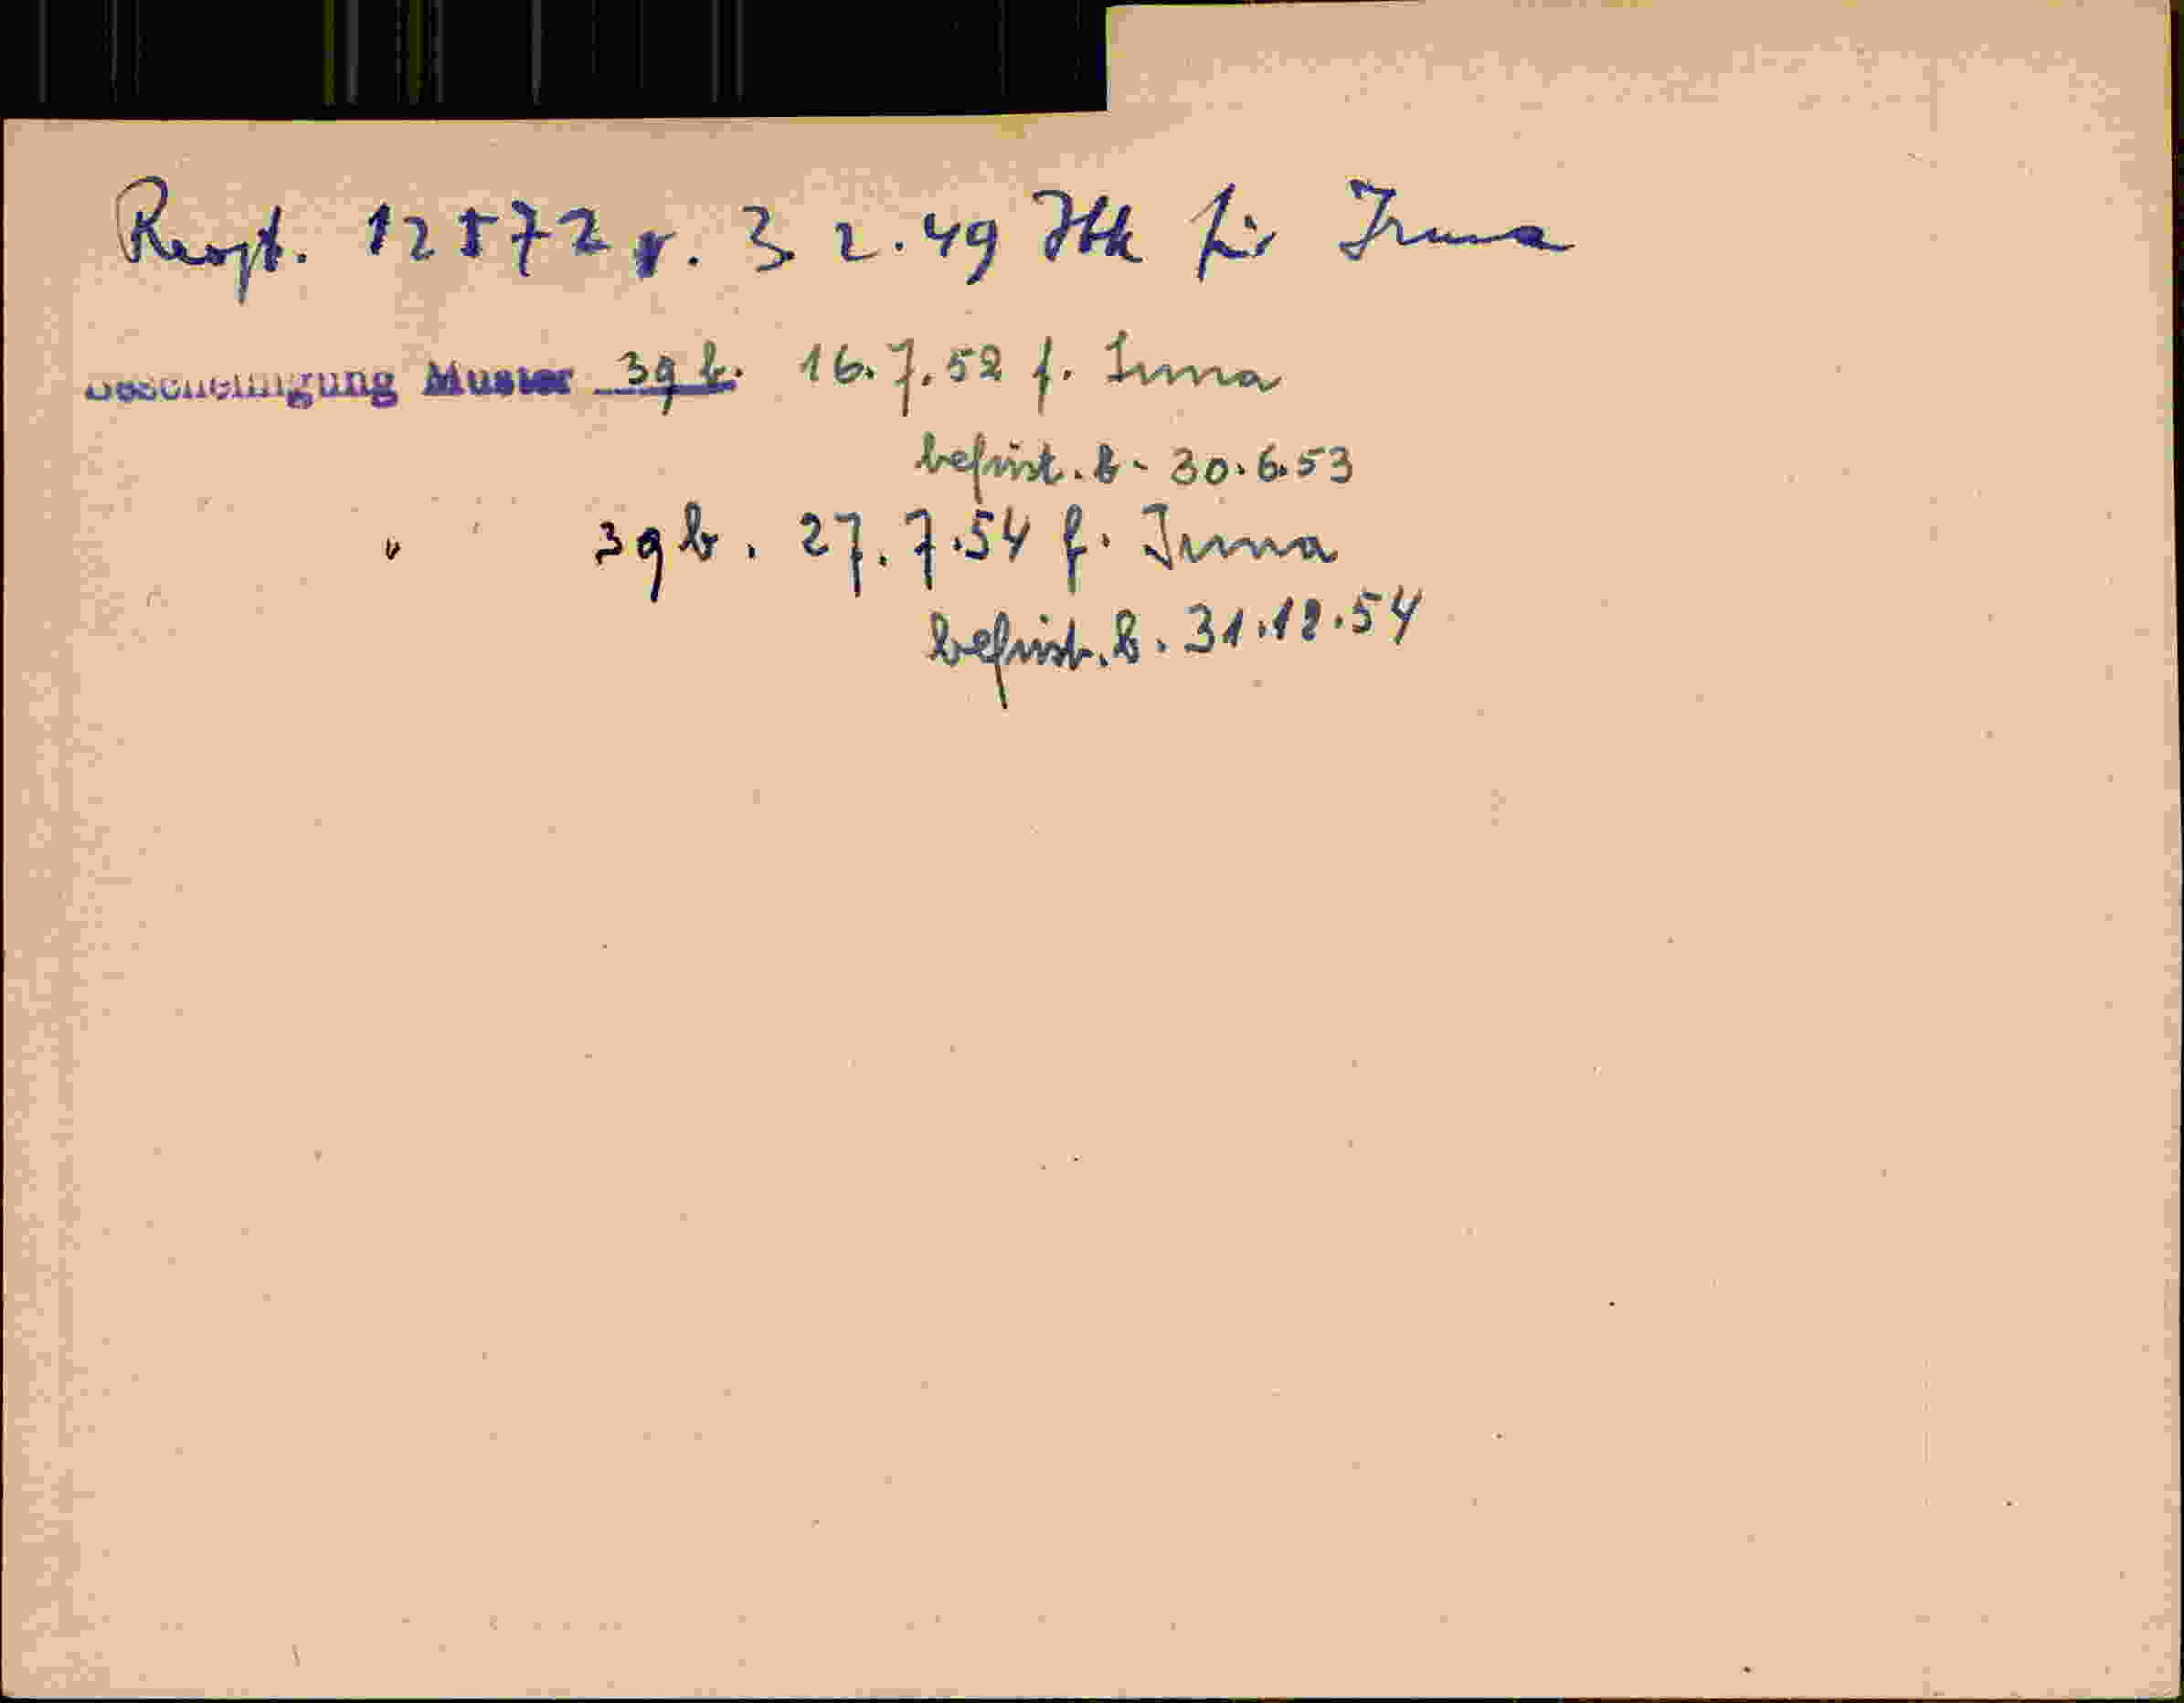 Respt. 12572 v. 3. 2. 49 Htk für Irma
Bescheinigung Muster 3g b. 16. 7. 52 f. Irma
befrist. b. 30. 6. 53
" 3g b. 27. 7. 54 f. Irma
befrist. b. 31. 12. 54